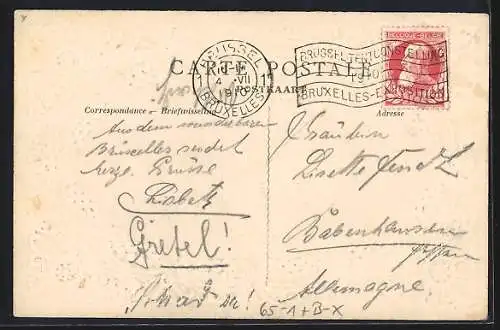 CARTE POSTALE
POSTKAART
BRUSSEL
4 VII
1910
BRUXELLES
BRUSSEL-TENTOONSTELLING
1910
BRUXELLES-EXPOSITION
BELGIQUE-BELGIË
Correspondance – Briefwisseling
Adresse
Aus dem wunderbaren
Bruxelles sendet
herzl. Grüsse
Lisbeth
Gretel!
Fräulein
Lisette
Babenhausen
Hessen
Allemagne.
65-1+B-X